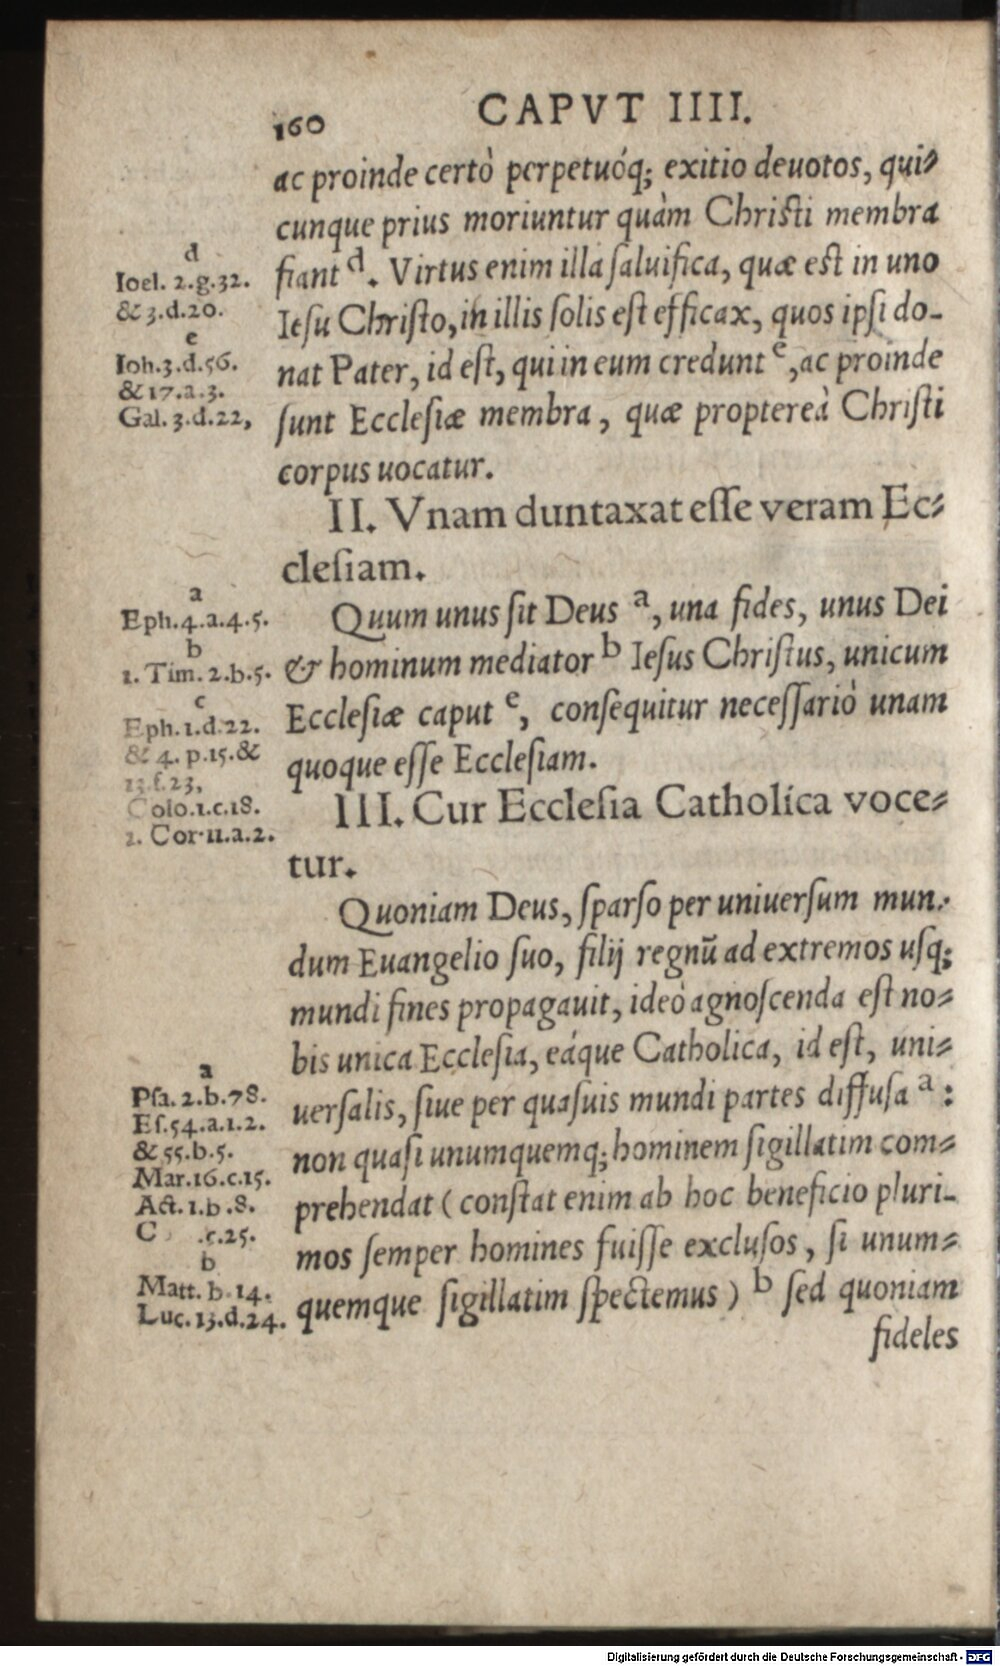 160
CAPVT IIII.
ac proinde certò perpetuóq; exitio deuotos, qui⸗
cunque prius moriuntur quàm Christi membra
fiant d. Virtus enim illa ſaluifica, quæ est in uno
Ieſu Chriſto, in illis ſolis eſt efficax, quos ipſi do-
nat Pater, id eſt, qui in eum credunt e, ac proinde
ſunt Eccleſiæ membra, quæ propterea Chriſti
corpus uocatur.
d
Ioel. 2.g.32.
& 3.d.20.
e
Ioh.3.d.56.
& 17.a.3.
Gal. 3.d.22,
II. Vnam duntaxat eſſe veram Ec⸗
cleſiam.
Quum unus ſit Deus a, una fides, unus Dei
& hominum mediator b Ieſus Chriſtus, unicum
Eccleſiæ caput e, conſequitur neceſſariò unam
quoque eſſe Eccleſiam.
a
Eph.4.a.4.5.
b
1. Tim. 2.b.5.
c
Eph.1.d.22.
& 4. p.15.&
13.f.23,
Colo.1.c.18.
2. Cor.11.a.2.
III. Cur Eccleſia Catholica voce⸗
tur.
Quoniam Deus, ſparſo per uniuerſum mun⸗
dum Euangelio ſuo, filij regnū ad extremos uſq;
mundi fines propagauit, ideò agnoſcenda eſt no⸗
bis unica Eccleſia, eáque Catholica, id eſt, uni⸗
uerſalis, ſiue per quaſuis mundi partes diffuſa a:
non quaſi unumquemq; hominem ſigillatim com⸗
prehendat (conſtat enim ab hoc beneficio pluri-
mos ſemper homines fuiſſe excluſos, ſi unum⸗
quemque ſigillatim ſpectemus) b ſed quoniam
fideles
a
Pſa. 2.b.78.
Eſ.54.a.1.2.
& 55.b.5.
Mar.16.c.15.
Act. 1.b.8.
C .c.25.
b
Matt. b.14.
Luc. 13.d.24.
Digitalisierung gefördert durch die Deutsche Forschungsgemeinschaft - DFG